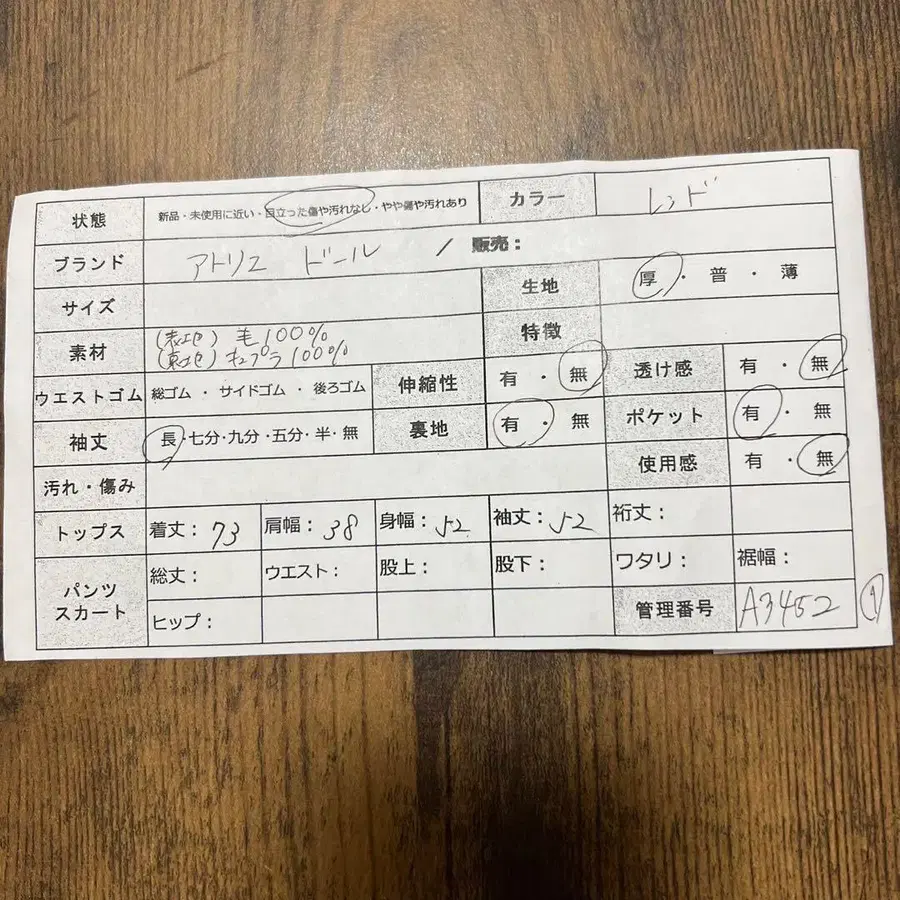 状態 新品・未使用に近い・目立った傷や汚れなし・やや傷や汚れあり カラー レッド
ブランド アトリエ ドール / 販売：
サイズ 生地 厚・普・薄
素材 (表地) 毛100% 特徴
(裏地) キュプラ100%
ウエストゴム 総ゴム・サイドゴム・後ろゴム 伸縮性 有・無 透け感 有・無
袖丈 長・七分・九分・五分・半・無 裏地 有・無 ポケット 有・無
汚れ・傷み 使用感 有・無
トップス 着丈：73 肩幅：38 身幅：52 袖丈：52 裄丈：
パンツ スカート 総丈： ウエスト： 股上： 股下： ワタリ： 裾幅：
ヒップ： 管理番号 A3452 ①